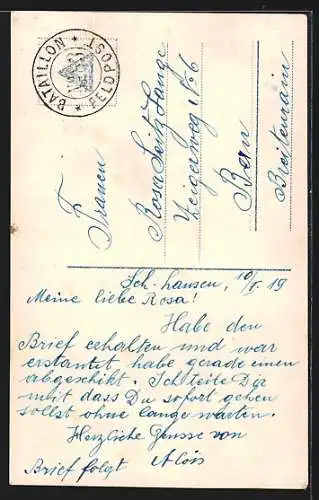 BATAILLON * FELDPOST *
Frauen
Rosa Seitz Lange
Zeigerweg No 6
Bern
Breitenrain
Sch. hausen, 10/I. 19
Meine liebe Rosa!
Habe den
Brief erhalten und war
erstantet habe gerade einen
abgeschikt. Ich teite Dir
mit dass Du sofort gehen
sollst ohne lange warten.
Herzliche Grüsse von
Brief folgt Alois